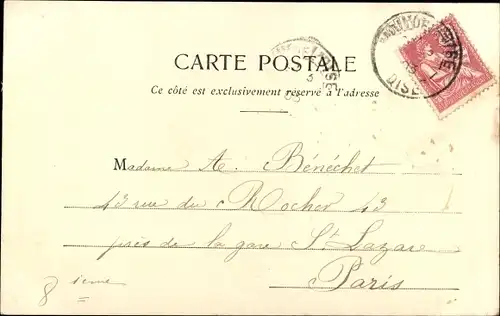 CARTE POSTALE
Ce côté est exclusivement réservé à l'adresse
Madame A. Bénéchet
43 rue du Rocher 43
près de la gare St Lazare
Paris
8 ième
OISE